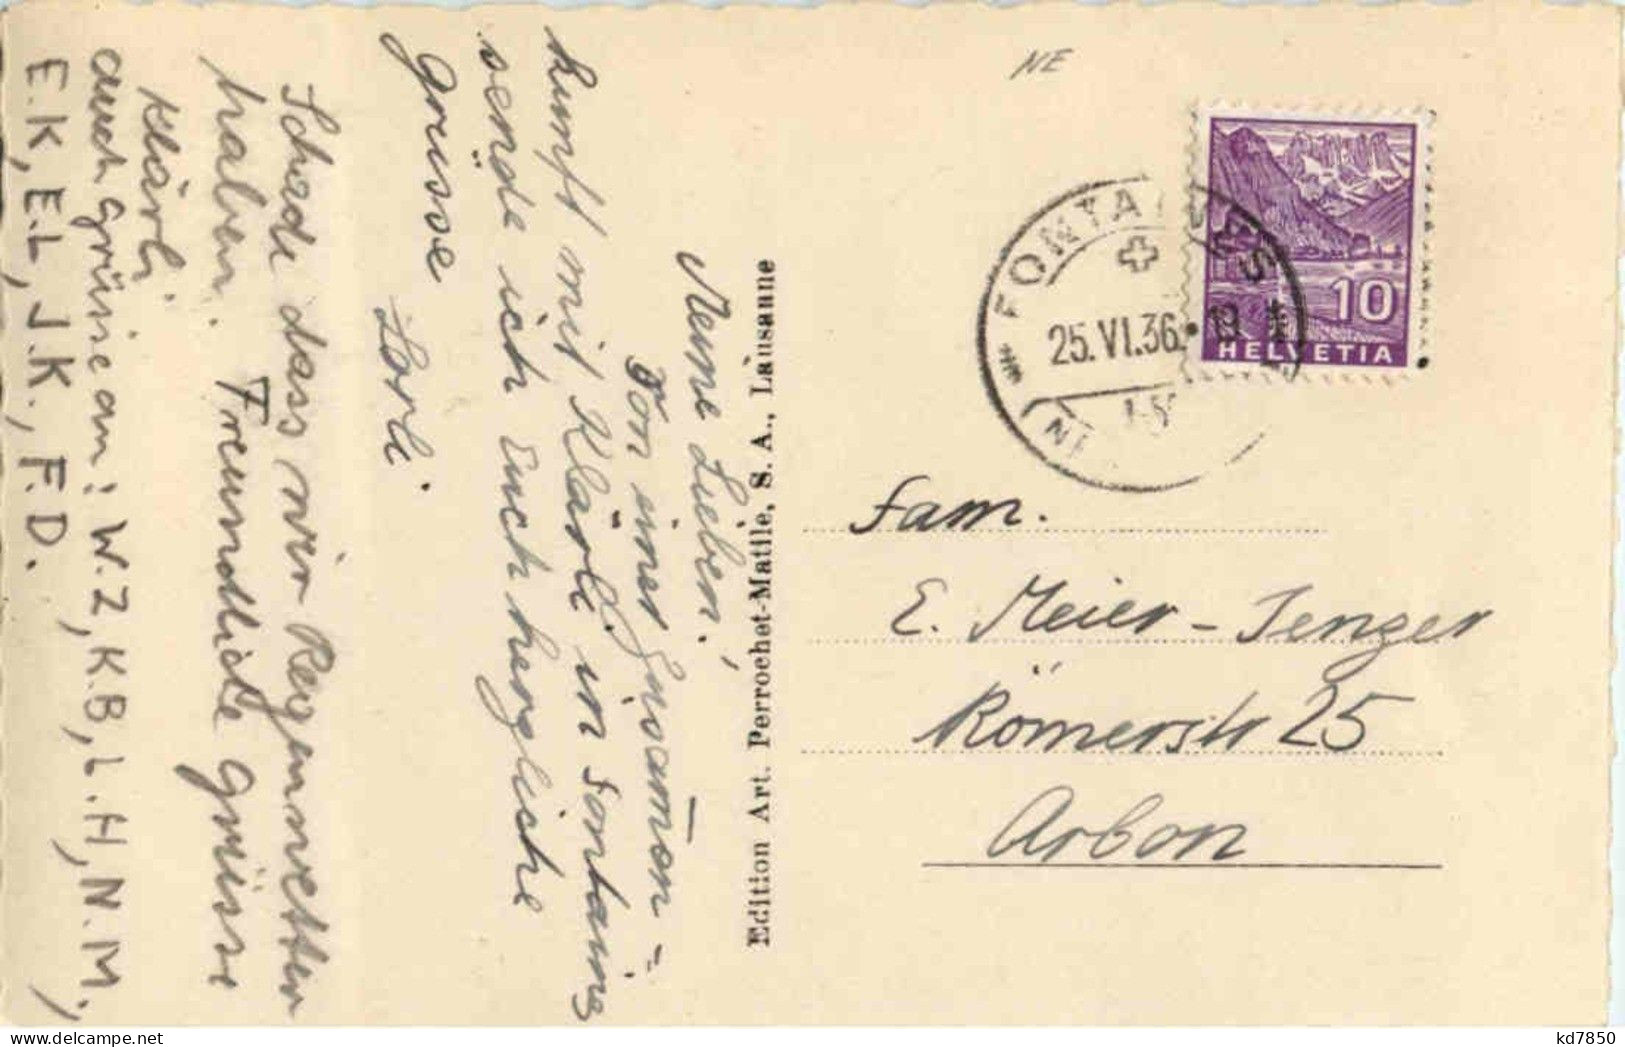 Meine Lieben!
Von einer Zusammen=
kunft mit Klärli in Fontaines
sende ich Euch herzliche
Grüsse
Lorli.
Schade dass wir Regenwetter
haben. Freundliche Grüsse
Klärli.
auch Grüsse an: W.Z, K.B, L.H, N.M,
E.K, E.L, J.K., F.D.
Edition Art. Perrochet-Matile, S. A., Lausanne
NE
FONTAINES
25.VI.36
10
HELVETIA
Fam.
E. Meier-Senger
Römerstr 25
Arbon
kd7850